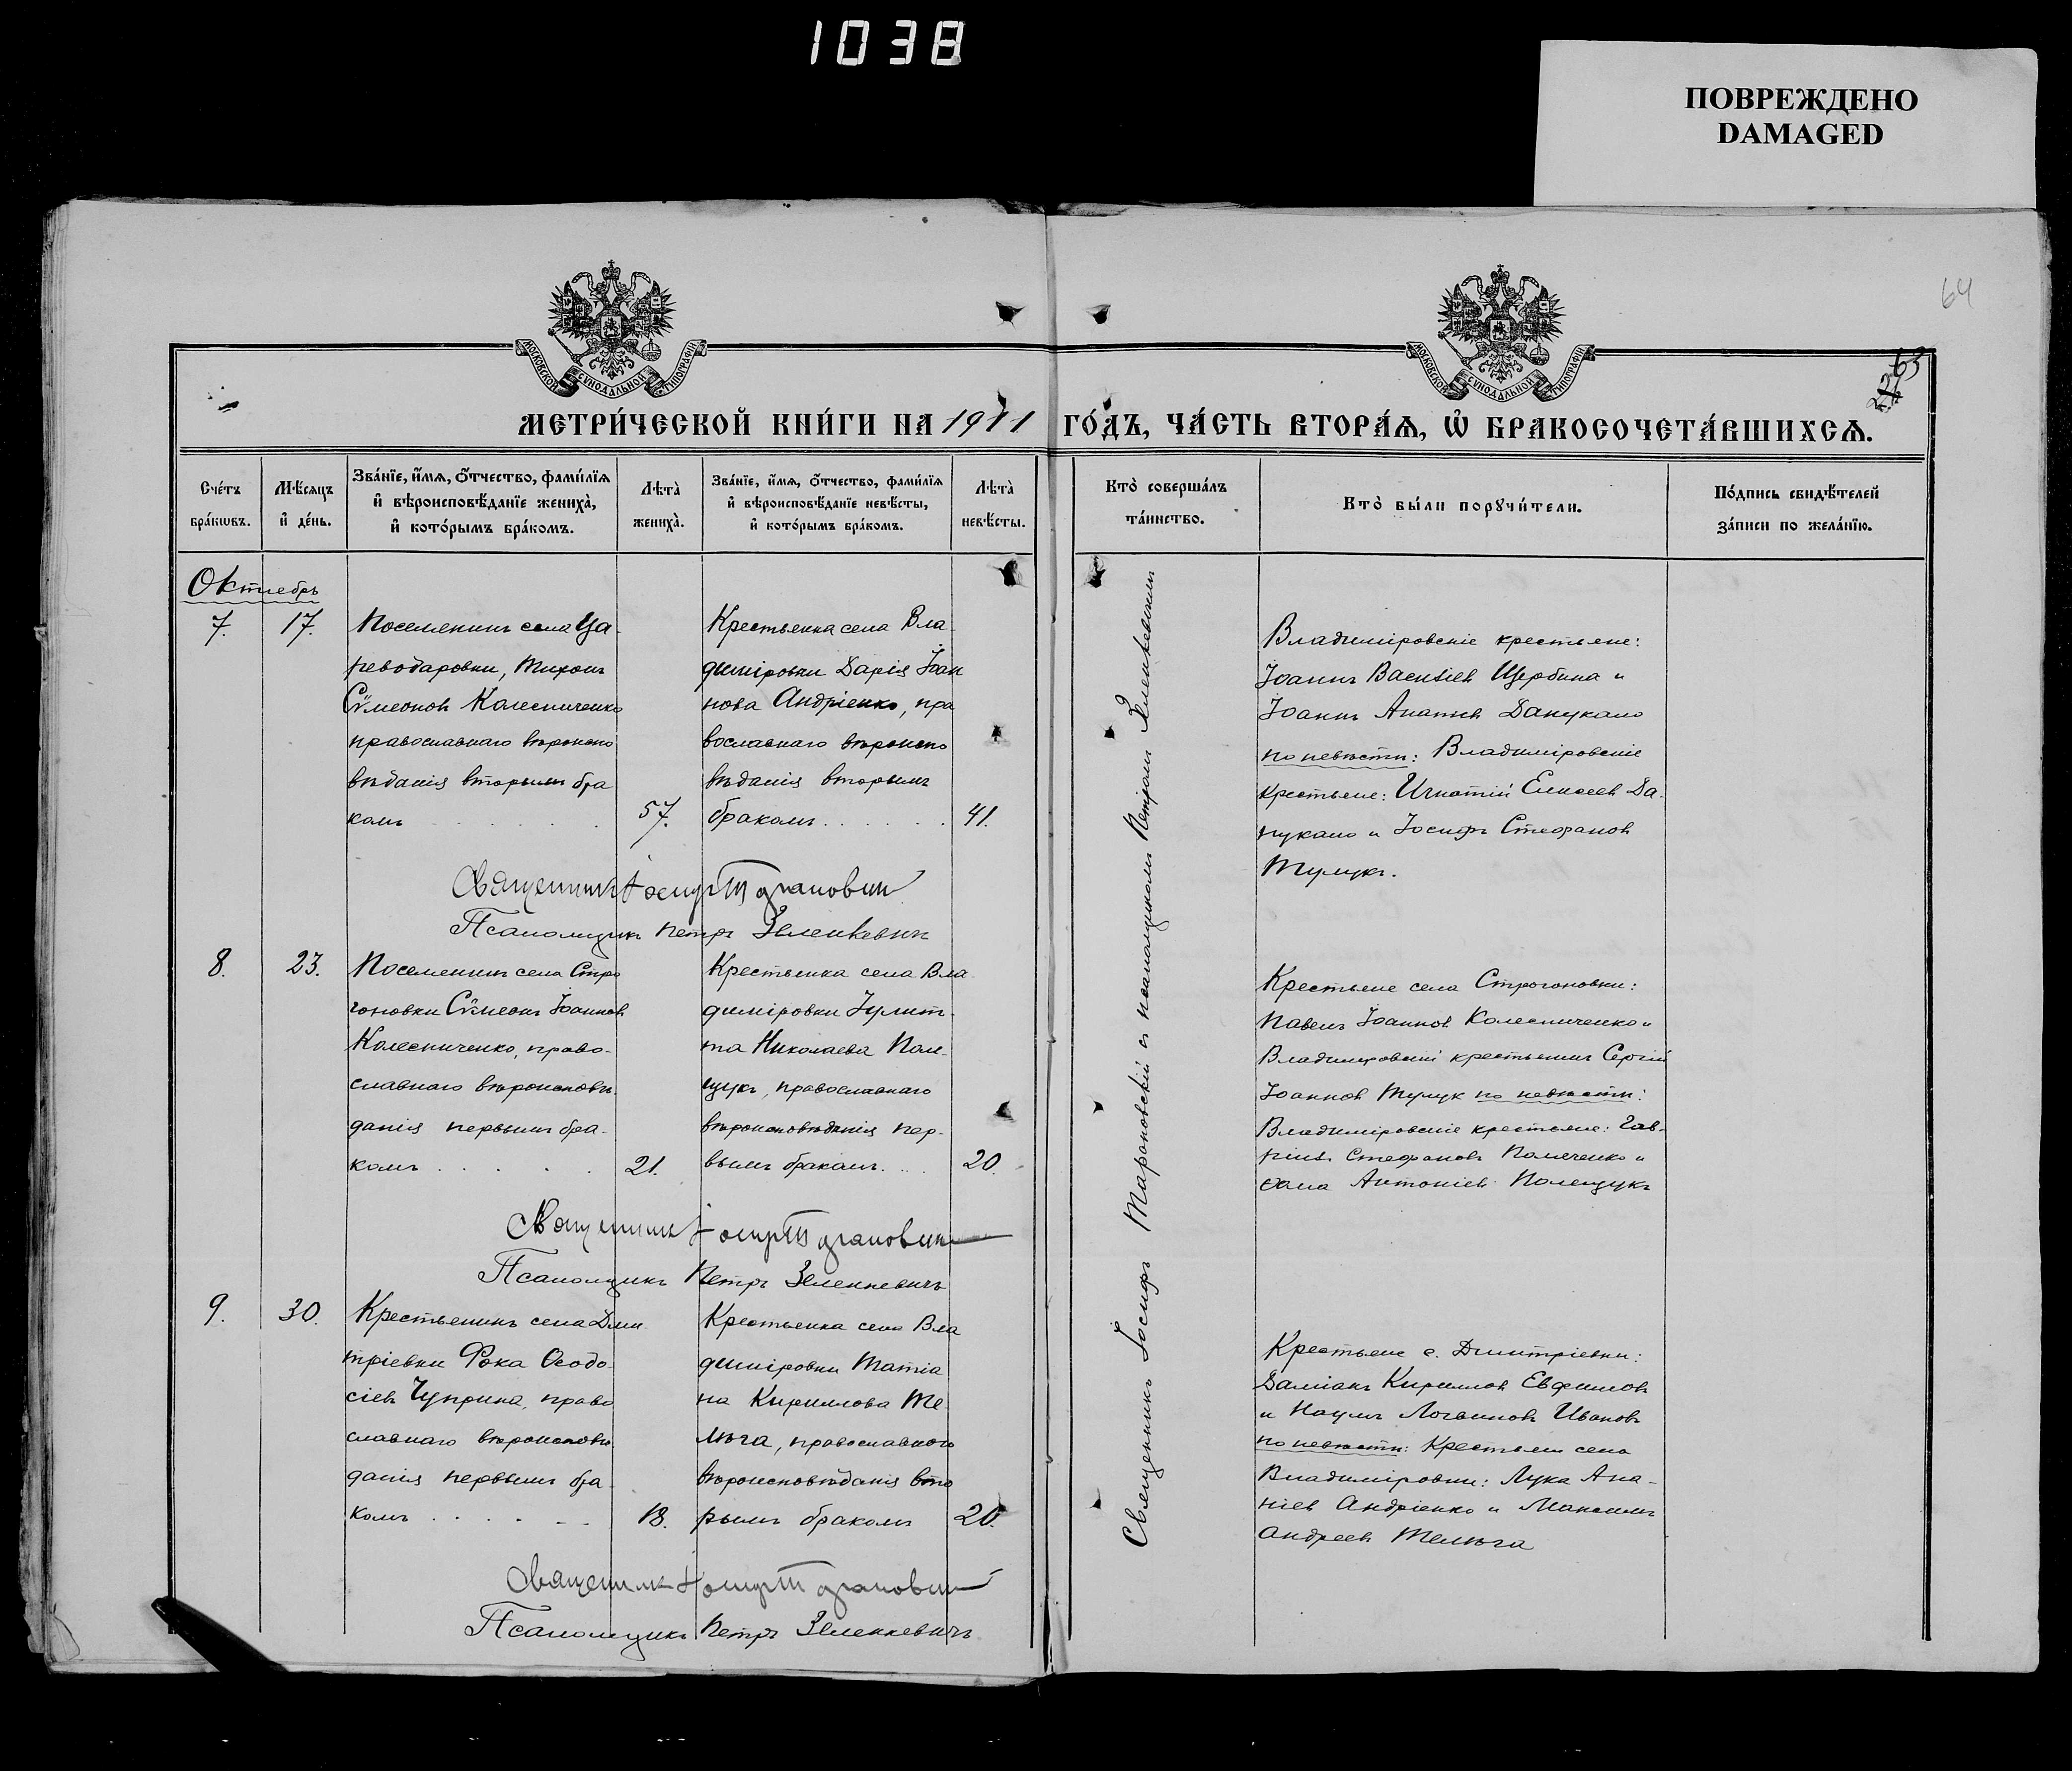 1038
ПОВРЕЖДЕНО
DAMAGED
64
63
МОСКОВСКОЙ СѴНОДАЛЬНОЙ ТИПОГРАФІИ
МОСКОВСКОЙ СѴНОДАЛЬНОЙ ТИПОГРАФІИ
МЕТРИ́ЧЕСКОЙ КНИ́ГИ НА 1911 ГО́ДЪ, ЧА́СТЬ ВТОРА́Ѧ, Ѡ҆ БРАКОСОЧЕТА́ВШИХСѦ.
Сче́тъ
бра́кѡвъ.
Мѣ́сѧцъ
и҆ де́нь.
Зва́нїе, и҆́мѧ, ѻ҆́тчество, фами́лїѧ
и҆ вѣроисповѣ́данїе жениха̀,
и҆ кото́рымъ бра́комъ.
Лѣта̀
жениха̀.
Зва́нїе, и҆́мѧ, ѻ҆́тчество, фами́лїѧ
и҆ вѣроисповѣ́данїе невѣ́сты,
и҆ кото́рымъ бра́комъ.
Лѣта̀
невѣ́сты.
Кто̀ соверша́лъ
та́инство.
Кто̀ бы́ли порꙋчи́тели.
По́дпись свидѣ́телей
за́писи по жела́нїю.
Октябрь
7.
17.
Поселянинъ села Ца
редаровки, Тихонъ
Сѷмеоновъ Колесниченко
православнаго вѣроиспо
вѣданія вторымъ бра
комъ
57.
Крестьянка села Вла
димировки Дарія Іоан
нова Андріенко, пра
вославнаго вѣроиспо
вѣданія вторымъ
бракомъ
41.
Владиміровскіе крестьяне:
Іоаннъ Васильевъ Щербина и
Іоаннъ Данукало
по невѣсти: Владиміровскіе
крестьяне: Игнатій Елисеевъ Да
нукало и Іосифъ Стефановъ
Тулукъ.
Священникъ Іосифъ Тарановскій
Псаломщикъ Петръ Зеленкевичъ
8.
23.
Поселянинъ села Стро
гоновки Сѷмеонъ Іоанновъ
Колесниченко, право-
славнаго вѣроисповѣ
данія первымъ бра-
комъ
21.
Крестьянка села Вла
диміровки Іулит-
та Николаева Поле-
щукъ, православнаго
вѣроисповѣданія пер-
вымъ бракомъ
20.
Крестьяне села Строгоновки:
Павелъ Іоанновъ Колесниченко и
Владиміровскій крестьянинъ Сергій
Іоанновъ Тулукъ по невѣсти:
Владиміровскіе крестьяне: Гав-
ріилъ Стефановъ и
Ѳома Антоніевъ Полещукъ
Священникъ Іосифъ Тарановскій
Псаломщикъ Петръ Зеленкевичъ
9.
30.
Крестьянинъ села Дми
тріевки Фока Ѳеодо
сіевъ Чуприна, право
славнаго вѣроисповѣ
данія первымъ бра
комъ
18.
Крестьянка села Вла
диміровки Татіа
на Кириллова Те
лѣга, православнаго
вѣроисповѣданія вто
рымъ бракомъ
20.
Крестьяне с. Димитріевки:
Даміанъ Кирилловъ Евфимовъ
и Наумъ Логвиновъ Ивановъ
по невѣсти: Крестьяне села
Владиміровки: Лука Ана-
ніевъ Андріенко и Максимъ
Андреевъ Телѣга
Священникъ Іосифъ Тарановскій
Псаломщикъ Петръ Зеленкевичъ
Священникъ Іосифъ Тарановскій съ псаломщикомъ Петромъ Зеленкевичемъ